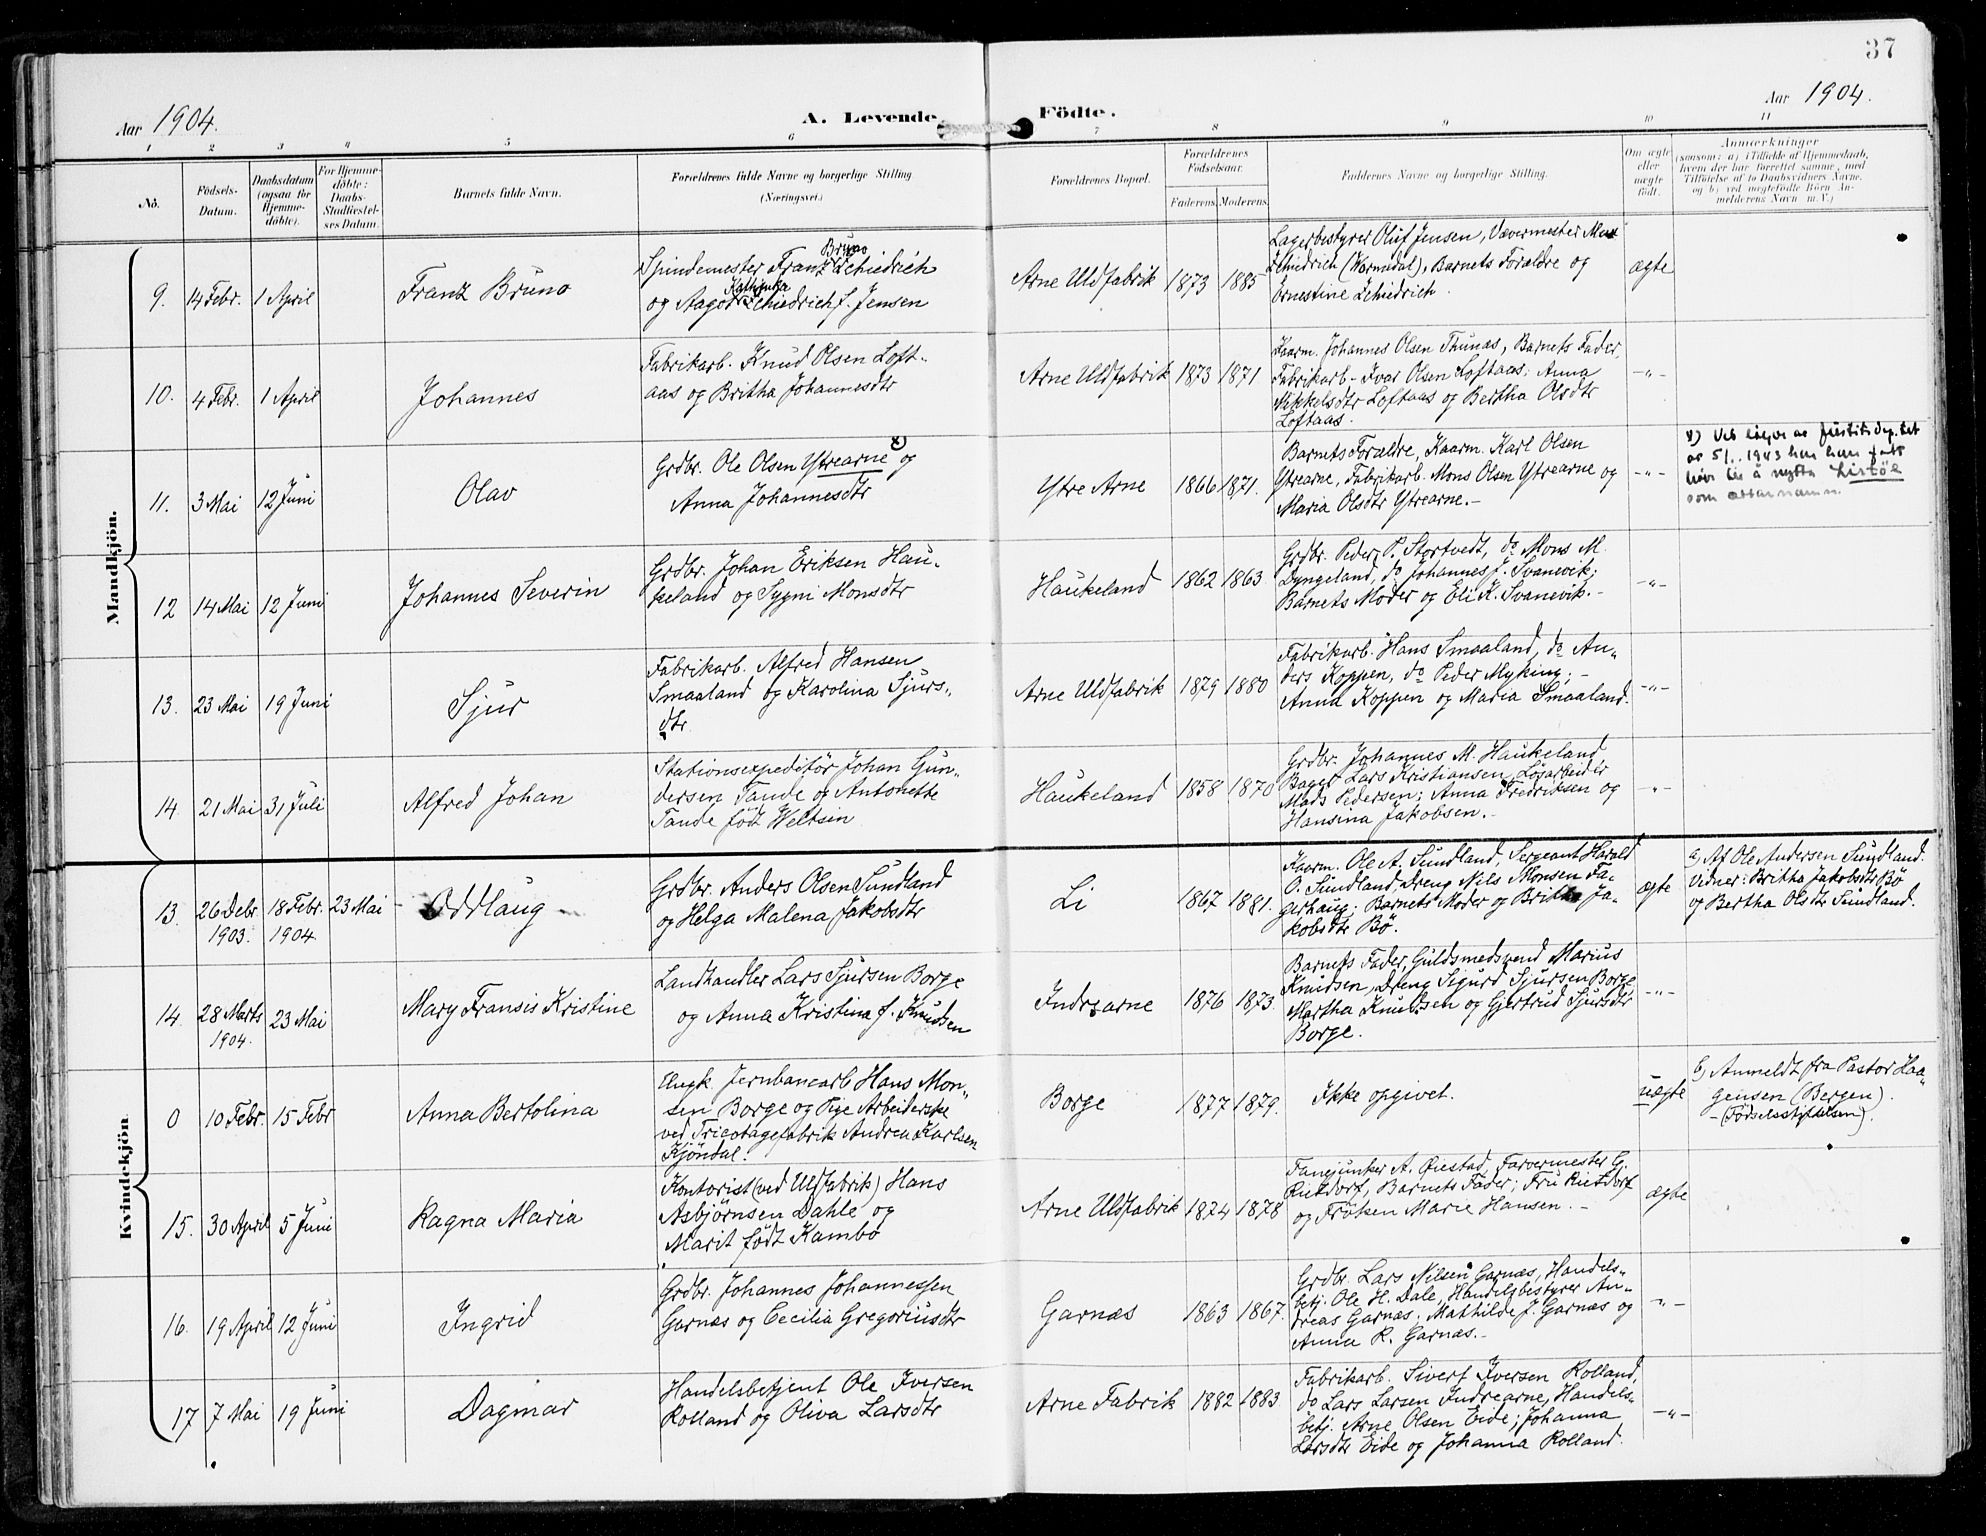 37
Aar 1904.
A. Levende
Födte.
Aar 1904.
1 2 3 4 5 6 7 8 9 10 11
No.
Födsels-
Datum.
Daabsdatum
(ogsaa for
Hjemme-
döbte).
For Hjemme-
döbte:
Daabs-
Stadfæstel-
ses Datum.
Barnets fulde Navn.
Forældrenes fulde Navne og borgerlige Stilling
(Næringsvei.)
Forældrenes Bopæl.
Forældrenes
Födselsaar.
Faderens. Moderens.
Faddernes Navne og borgerlige Stilling.
Om ægte
eller
uægte
födt.
Anmærkninger
(saasom: a) i Tilfælde af Hjemmedaab,
hvem der har forrettet samme, med
Tilföielse af to Daabsvidners Navne,
og b) ved uægtefödte Börn An-
melderens Navn m. V.)
Mandkjön.
9. 14 Febr. 1 April
Franz Bruno
Bruno
Spindemester Franz Schiedrich
Kathinka
og Aagot Schiedrich f. Jensen
Arne Uldfabrik 1873 1885
Lagerbestyrer Oluf Jensen, Vævermester Max
Schiedrich (Wormedal), Barnets Forældre og
Ernestine Schiedrich.
ægte
10. 4 Febr. 1 April
Johannes
Fabrikarb. Knud Olsen Loft-
aas og Britha Johannesdtr
Arne Uldfabrik 1873 1871
Kaarm. Johannes Olsen Thunas, Barnets Fader,
Fabrikarb. Ivar Olsen Loftaas; Anna
Mikkelsdtr Loftaas og Bertha Olsdtr
Loftaas.
-"-
11. 3 Mai 12 Juni
Olav
Grdbr. Ole Olsen Ytrearne x) og
Anna Johannesdtr
Ytre Arne 1866 1871.
Barnets Forældre, Kaarm. Karl Olsen
Ytrearne, Fabrikarb. Mons Olsen Ytrearne og
Maria Olsdtr Ytrearne.-
-"-
x) Ved løyve av justitsdep.tet
av 5/ 1943 har han fått
løyve til å nytta
som ættarnamn.
12 14 Mai 12 Juni
Johannes Severin
Grdbr. Johan Eriksen Hau-
keland og Sygni Monsdtr
Haukeland 1862 1863
Grdbr. Peder P. Stortvedt, do Mons M.
Dyngeland, do Johannes J. Svanevik;
Barnets Moder og Eli K. Svanevik.-
-"-
13. 23 Mai 19 Juni
Sjur
Fabrikarb. Alfred Hansen
Smaaland og Karolina Sjurs-
dtr.
Arne Uldfabrik 1879 1880
Fabrikarb. Hans Smaaland, do An-
ders Koppen, do Peder Myking; -
Anna Koppen og Maria Smaaland.
-"-
14. 21 Mai 31 Juli
Alfred Johan
Stationsexpeditör Johan Gun-
dersen Tande og Antonette
Tande född Weltsen
Haukeland 1858 1870
Grdbr. Johannes M. Haukeland
Bager Lars Kristiansen, Løsarbeider
Mads Pedersen; Anna Fredriksen og
Hansina Jakobsen.-
-"-
Kvindekjön
13. 26 Debr. 18 Febr. 23 Mai
1903. 1904.
Oddlaug
Grdbr. Anders Olsen Sundland
og Helga Malena Jakobsdtr
Li 1867 1881.
Kaarm. Ole A. Sundland, Sergeant Harald
O. Sundland, Dreng Nils Monsen Fa-
gerhaug; Barnets Moder og Britha Ja-
kobsdtr Bö.
ægte
a) Af Ole Andersen Sundland.
Vidner: Britha Jakobsdtr Bö
og Bertha Olsdtr Sundland.
14. 28 Marts 23 Mai
1904.
Mary Fransis Kristine
Landhandler Lars Sjursen Borge
og Anna Kristina f. Knudsen
Indrearne 1876 1873.
Barnets Fader, Guldsmedsvend Marius
Knudsen, Dreng Sigurd Sjursen Borge
Martha Knudsen og Gjertrud Sjursdtr
Borge.
-"-
0 10 Febr. 15 Febr
Anna Bertolina
Ungk. Jernbanearb Hans Mon-
sen Borge og Pige Arbeiderske
ved Tricotagefabrik Andrea Karlsen
Kjöndal.
Borge 1877 1879.
Ikke opgivet.
uægte
b) Anmeldt fra Pastor Haa-
gensen (Bergen).
-(Fødselsstiftelsen).
15. 30 April 5 Juni
Ragna Maria
Kontorist (ved Uldfabrik) Hans
Asbjörnsen Dahle og
Marit født Kambo
Arne Uldfabrik 1874 1878
Fanejunker A. Øiestad, Farvermester G.
Rietdorf, Barnets Fader; Fru Rietdorf
og Frøken Marie Hansen. -
ægte
16. 19 April 12 Juni
Ingrid
Grdbr. Johannes Johannessen
Garnæs og Cecilia Gregoriusdtr
Garnæs 1863 1867.
Grdbr. Lars Nilsen Garnæs, Handels-
betj. Ole H. Dale, Handelsbestyrer An-
dreas Garnæs, Mathilde J. Garnæs og
Anna R. Garnæs.-
-"-
17 7 Mai 19 Juni
Dagmar
Handelsbetjent Ole Iversen
Rolland og Oliva Larsdtr
Arne Fabrik 1882 1883
Fabrikarb. Sivert Iversen Rolland,
do Lars Larsen Indrearne, Handels-
betj. Arne Olsen Eide; Johanna
Larsdtr Eide og Johanna Rolland.
-"-